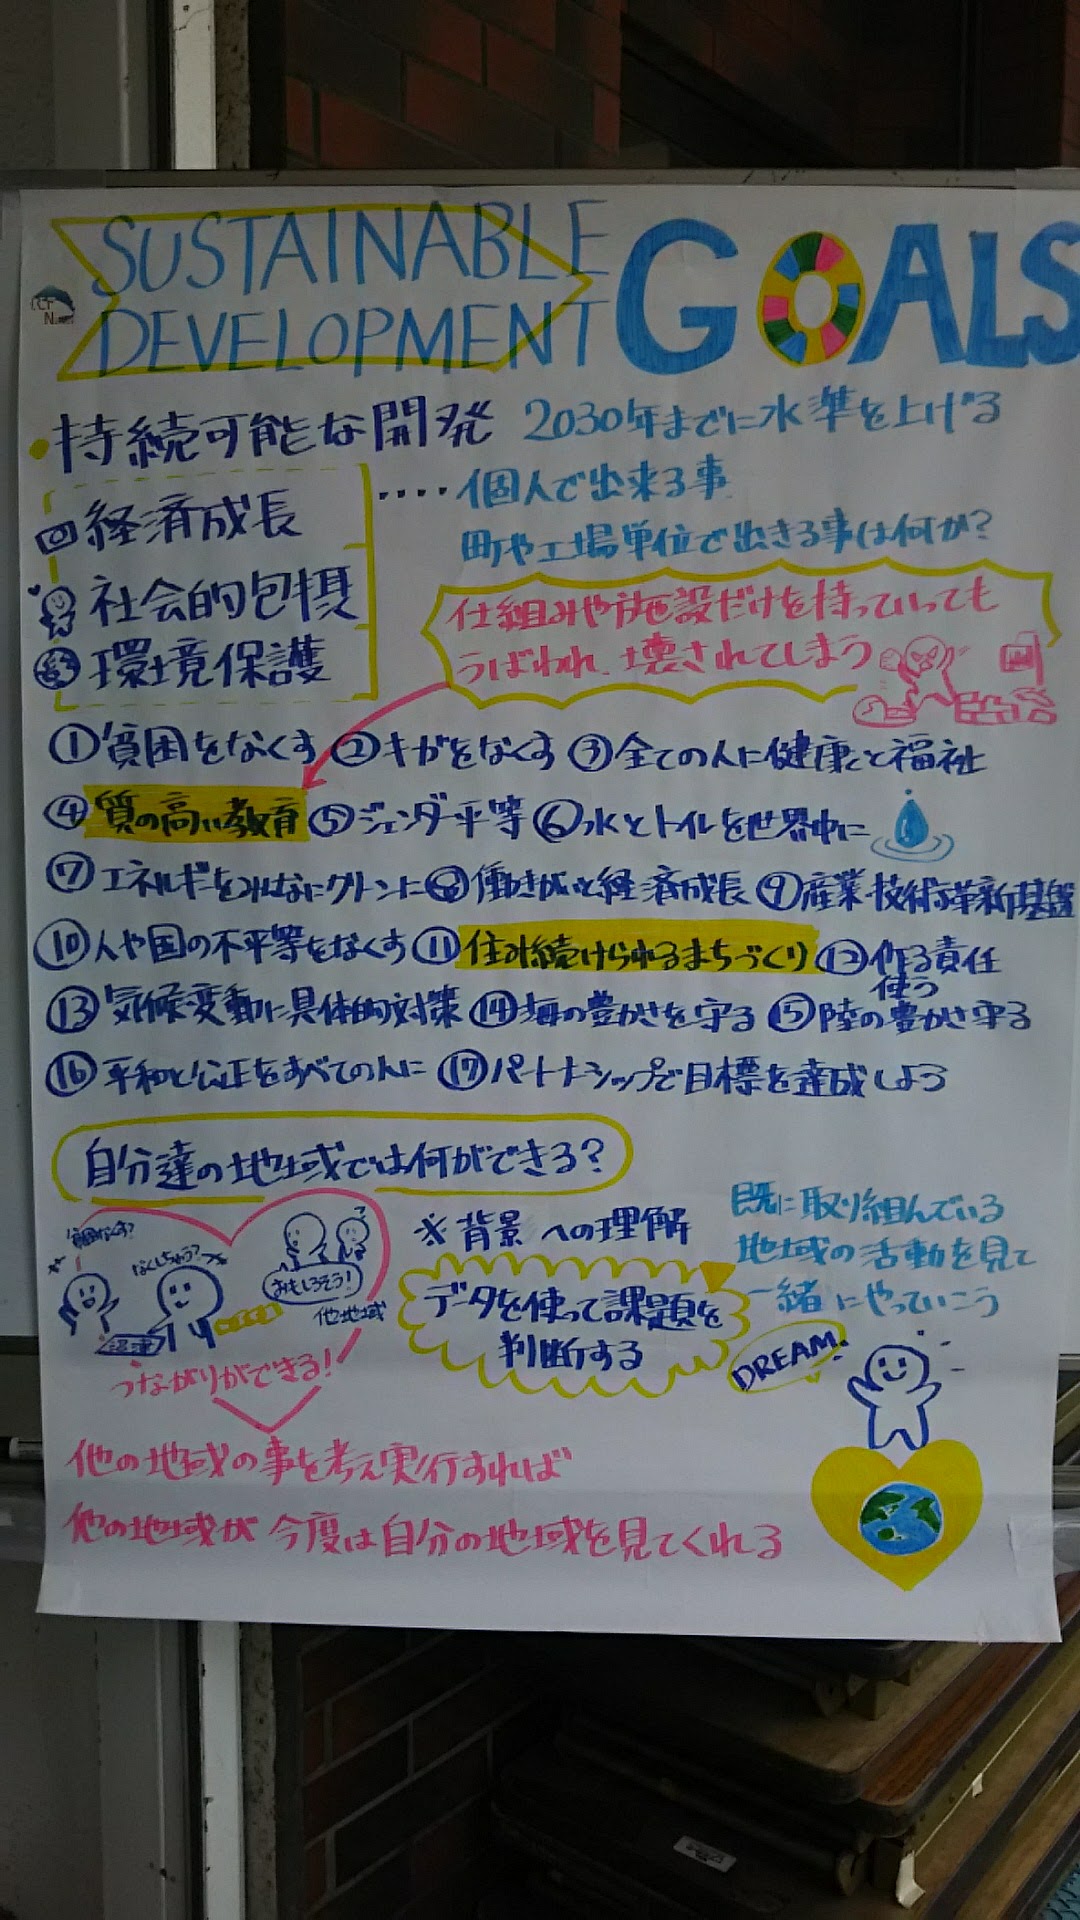 SUSTAINABLE
DEVELOPMENT
GOALS
・持続可能な開発 2030年までに水準を上げる
経済成長
社会的包摂
環境保護
････個人で出来る事
町や工場単位で出きる事は何か?
仕組みや施設だけを持っていっても
うばわれ、壊されてしまう
①貧困をなくす ②キガをなくす ③全ての人に健康と福祉
④質の高い教育 ⑤ジェンダー平等 ⑥水とトイレを世界中に
⑦エネルギーをみんなにクリーンに ⑧働きがいと経済成長 ⑨産業・技術革新基盤
⑩人や国の不平等をなくす ⑪住み続けられるまちづくり ⑫作る責任
使う
⑬気候変動に具体的対策 ⑭海の豊かさを守る ⑤陸の豊かさ守る
⑯平和と公正をすべての人に ⑰パートナーシップで目標を達成しよう
自分達の地域では何ができる?
おもしろそう!
他地域
つながりができる!
※背景への理解
データを使って課題を
判断する
既に取り組んでいる
地域の活動を見て
一緒にやっていこう
DREAM!
他の地域の事を考え実行すれば
他の地域が今度は自分の地域を見てくれる